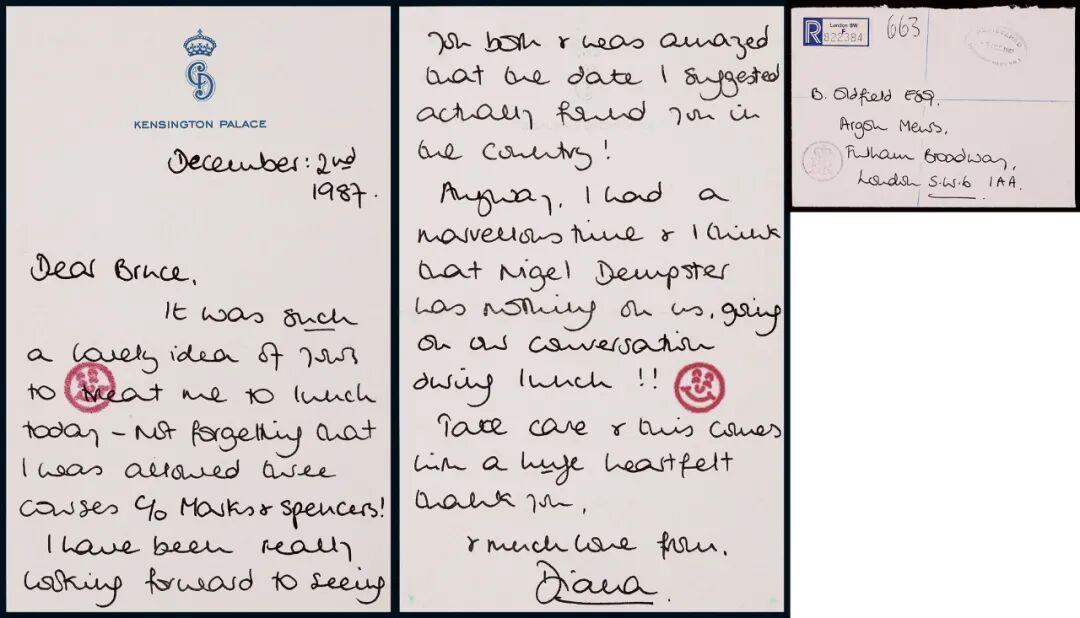 KENSINGTON PALACE
December: 2nd
1987.
Dear Bruce,
It was such
a lovely idea of yours
to treat me to lunch
today - not forgetting that
I was allowed three
courses c/o Marks & Spencers!
I have been really
looking forward to seeing
you both & was amazed
that the date I suggested
actually found you in
the country!
Anyway, I had a
marvellous time & I think
that Nigel Dempster
has nothing on us, going
on our conversation
during lunch !!
Take care & this comes
with a huge heartfelt
thank you,
& much love from,
Diana.
London SW
F
R
822384
663
REGISTERED
B. Oldfield ESQ.
Argon Mews,
Fulham Broadway,
London S.W.6 1AA.